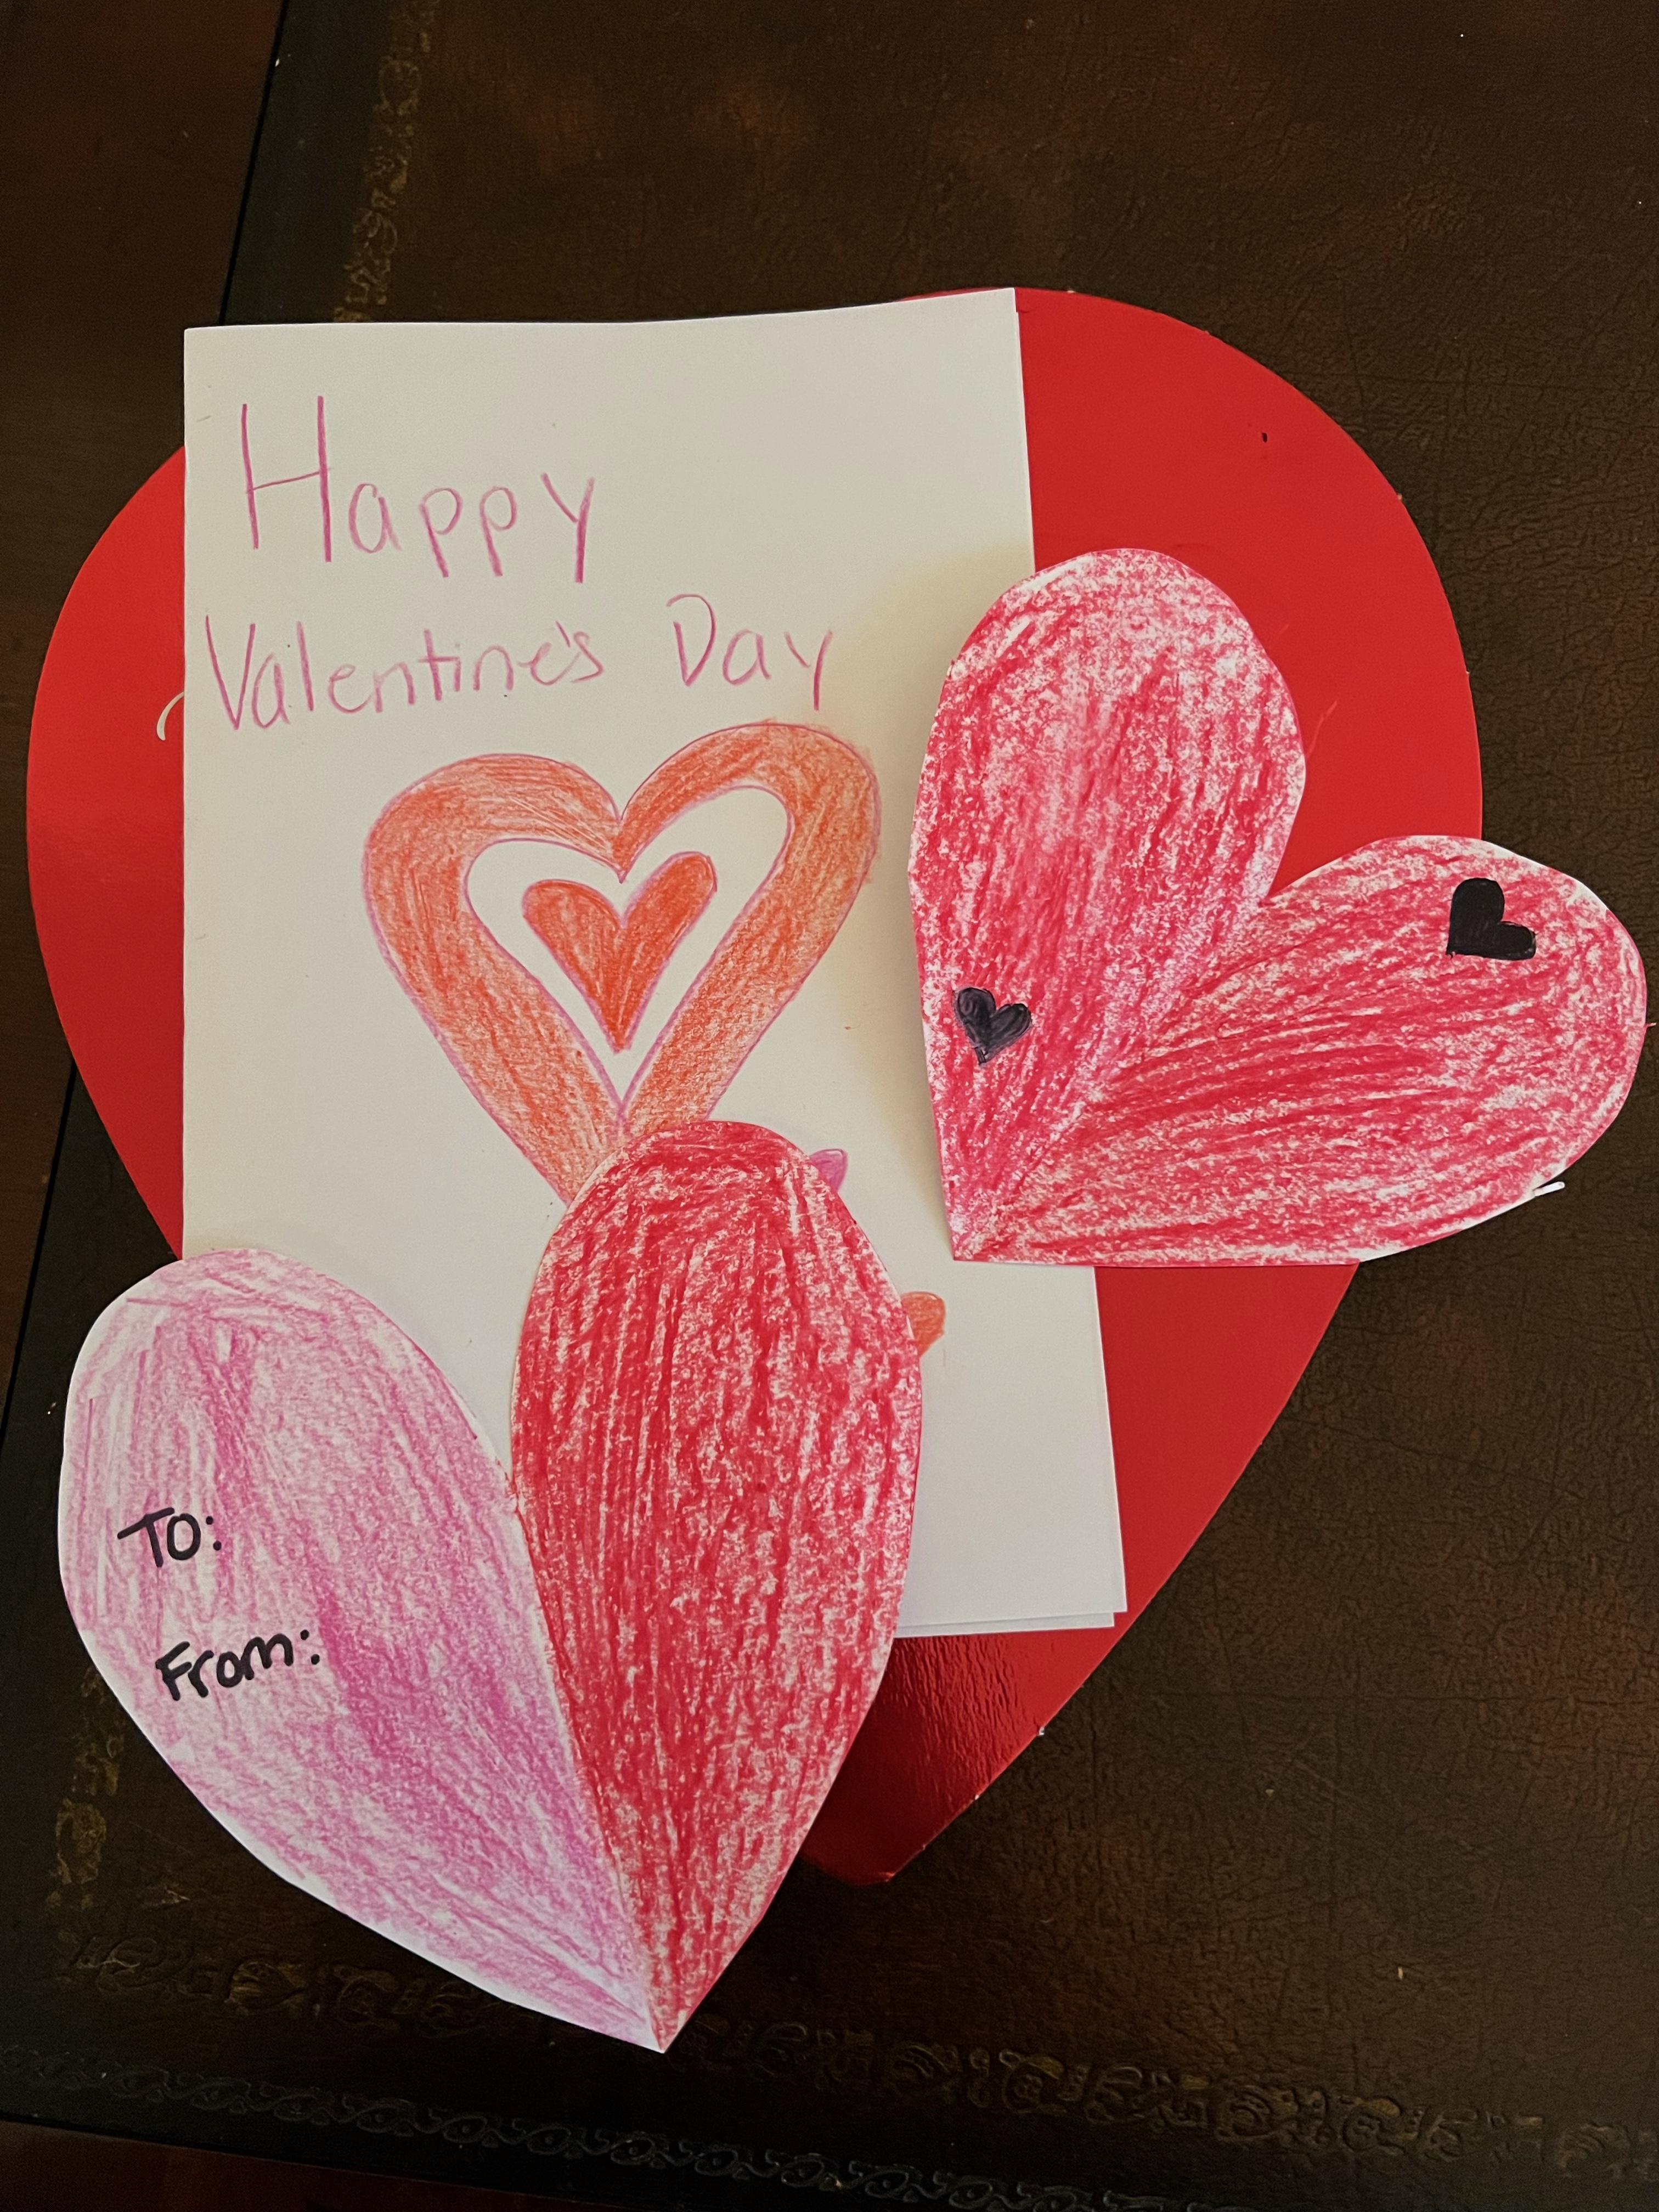 Happy
Valentine's Day
To:
From: